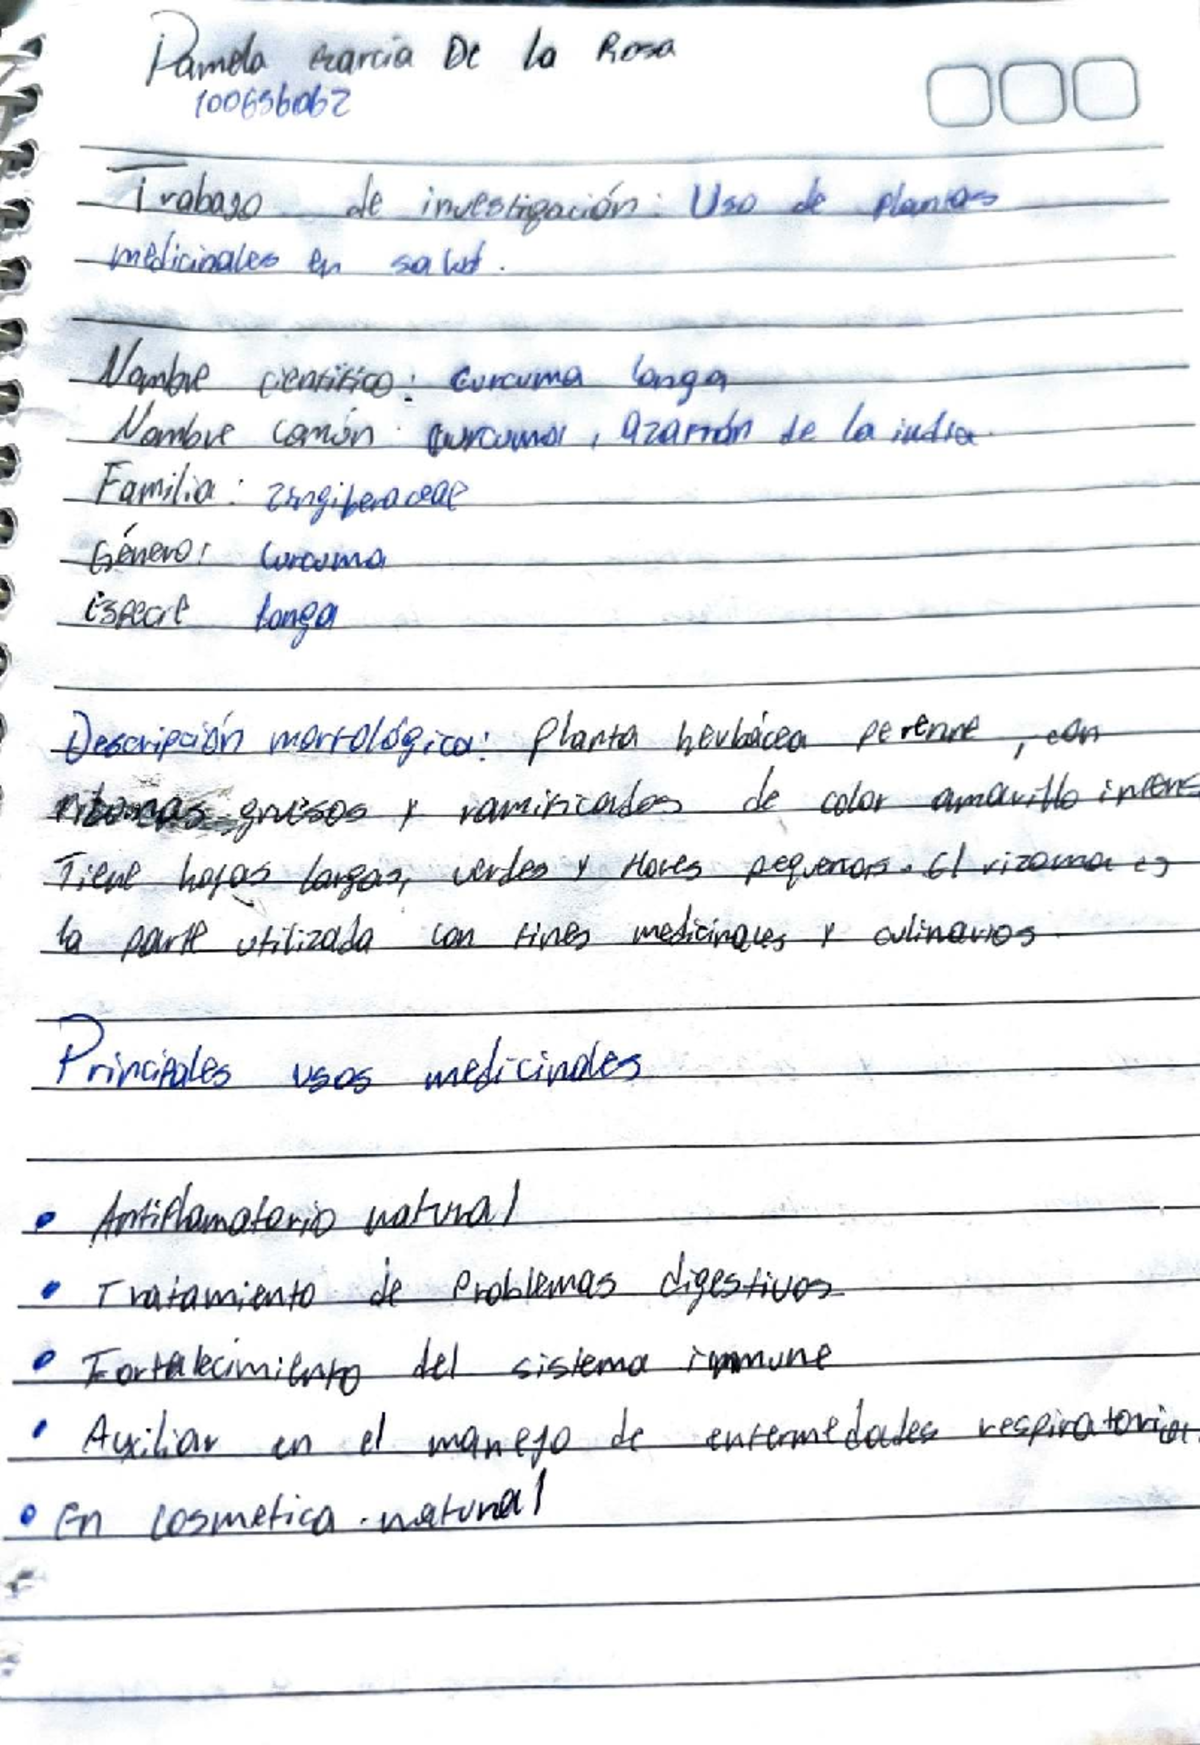 Pamela Garcia De la Rosa
100656062
Trabajo de investigación: Uso de plantas
medicinales en salud.
Nombre cientifico: curcuma longa
Nombre común: curcuma, azafrán de la india.
Familia: Zingiberaceae
Género: Curcuma
Especie longa
Descripción morfológica: Planta herbácea perenne, con
rizomas gruesos y ramificados de color amarillo intens
Tiene hojas largas, verdes y flores pequeñas. El rizoma es
la parte utilizada con fines medicinales y culinarios.
Principales usos medicinales
• Antiflamatorio natural
• Tratamiento de Problemas digestivos
• Fortalecimiento del sistema immune
• Auxiliar en el manejo de enfermedades respiratorias.
• En cosmetica natural